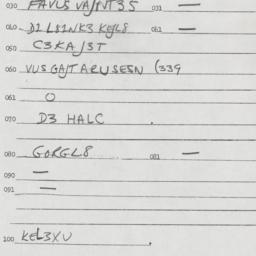 030 FAVLS VAJNT35 031 —
040 D2 L82NK3 KEJL8 061 —
050 C3KAJ3T
060 VUS GAJT ARUSESN (339
061 O
070 D3 HALC .
080 GORGL8 081 —
090 —
091 —
100 KEL3XU .